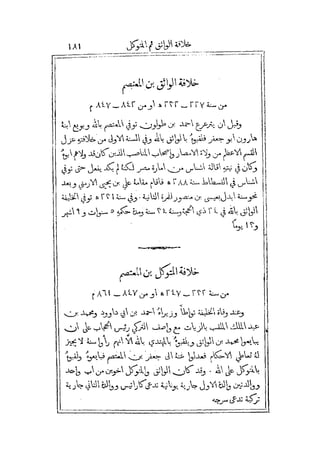 خلافة الواثق ثم المتوكل ١٨١
خلافة الواثق بن المعتصم
من سنة ٢٢٧ – ٢٣٢ ه او من ٨٤٢ – ٨٤٧ م
وقبل ان يترعرع احمد بن طولون توفي المعتصم بالله وبويع ابنه
هارون ابو جعفر فلقبوه بالواثق بالله وفي السنة الاولى من خلافته عزل
القسم الاعظم من ولاة الامصار واصحاب المناصب الذين كان قد ولاهم ابوه
وكان في نيته اقالة اشناس من امارة مصر لكنه لم يكد يفعل حتى توفي
اشناس في الفسطاط سنة ه فاقام مقامه علي بن يحيى الارمني وبعد
نحو سنة ابدل بعيسى بن منصور للمرة الثانية . وفي سنة ه توفي الخليفة
الواثق بالله في ٢٤ ذي الحجة وسنه ٣٤ سنة ومدة حكمه ٥ سنوات و ٩ اشهر
و يوماً
خلافة المتوكل بن المعتصم
من سنة ٢٣٢ – ٢٤٧ ه أو من ٨٤٧ – ٨٦١ م
وعند وفاة الخليفة تواطأ وزيراه احمد بن ابي داوود ومحمد بن
عبد الملك الملقب بالزيات مع واصف التركي رئيس الحجاب على ان
يبايعوا محمد بن الواثق ويلقبوه بالمهتدي بالله الا انهم رأوا سنه لا يجيز
له تعاطي الاحكام فعدلوا عنه الى جعفر بن المعتصم فبايعوه ولقبوه
بالمتوكل على الله . وقد كان الواثق والمتوكل اخوين من اب واحد
ووالدتين والدة الاول جارية يونانية تدعى كاراتيس ووالدة الثاني جارية
تركية تدعى